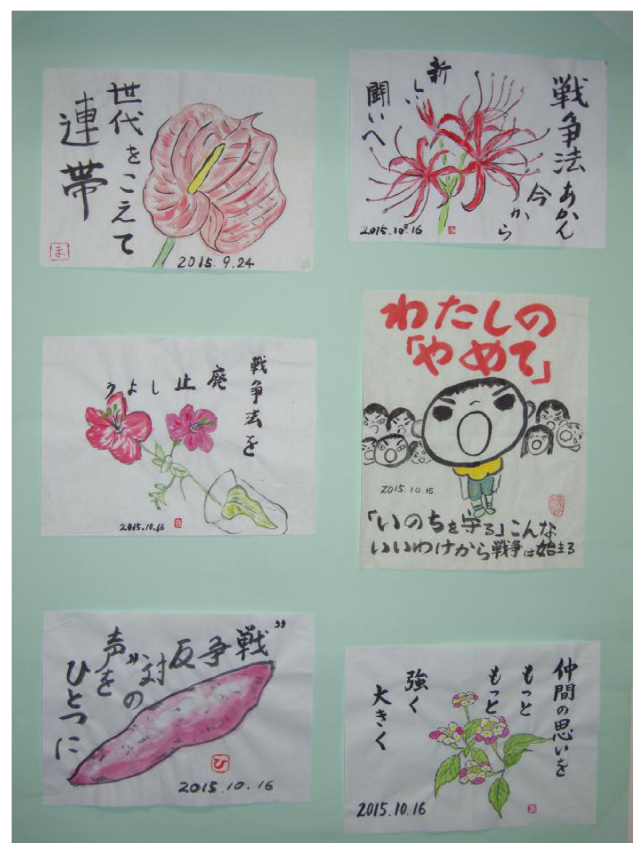 世代をこえて
連帯
2015.9.24
ま
戦争法あかん
今から
新しい
闘いへ
2015.10.16
戦争法を
廃止しよう
2015.10.16
わたしの
「やめて」
2015.10.15
「いのちを守る」こんな
いいわけから戦争は始まる
"戦争反対"の
声を
ひとつに
ひ
2015.10.16
仲間の思いを
もっと
もっと
強く
大きく
2015.10.16